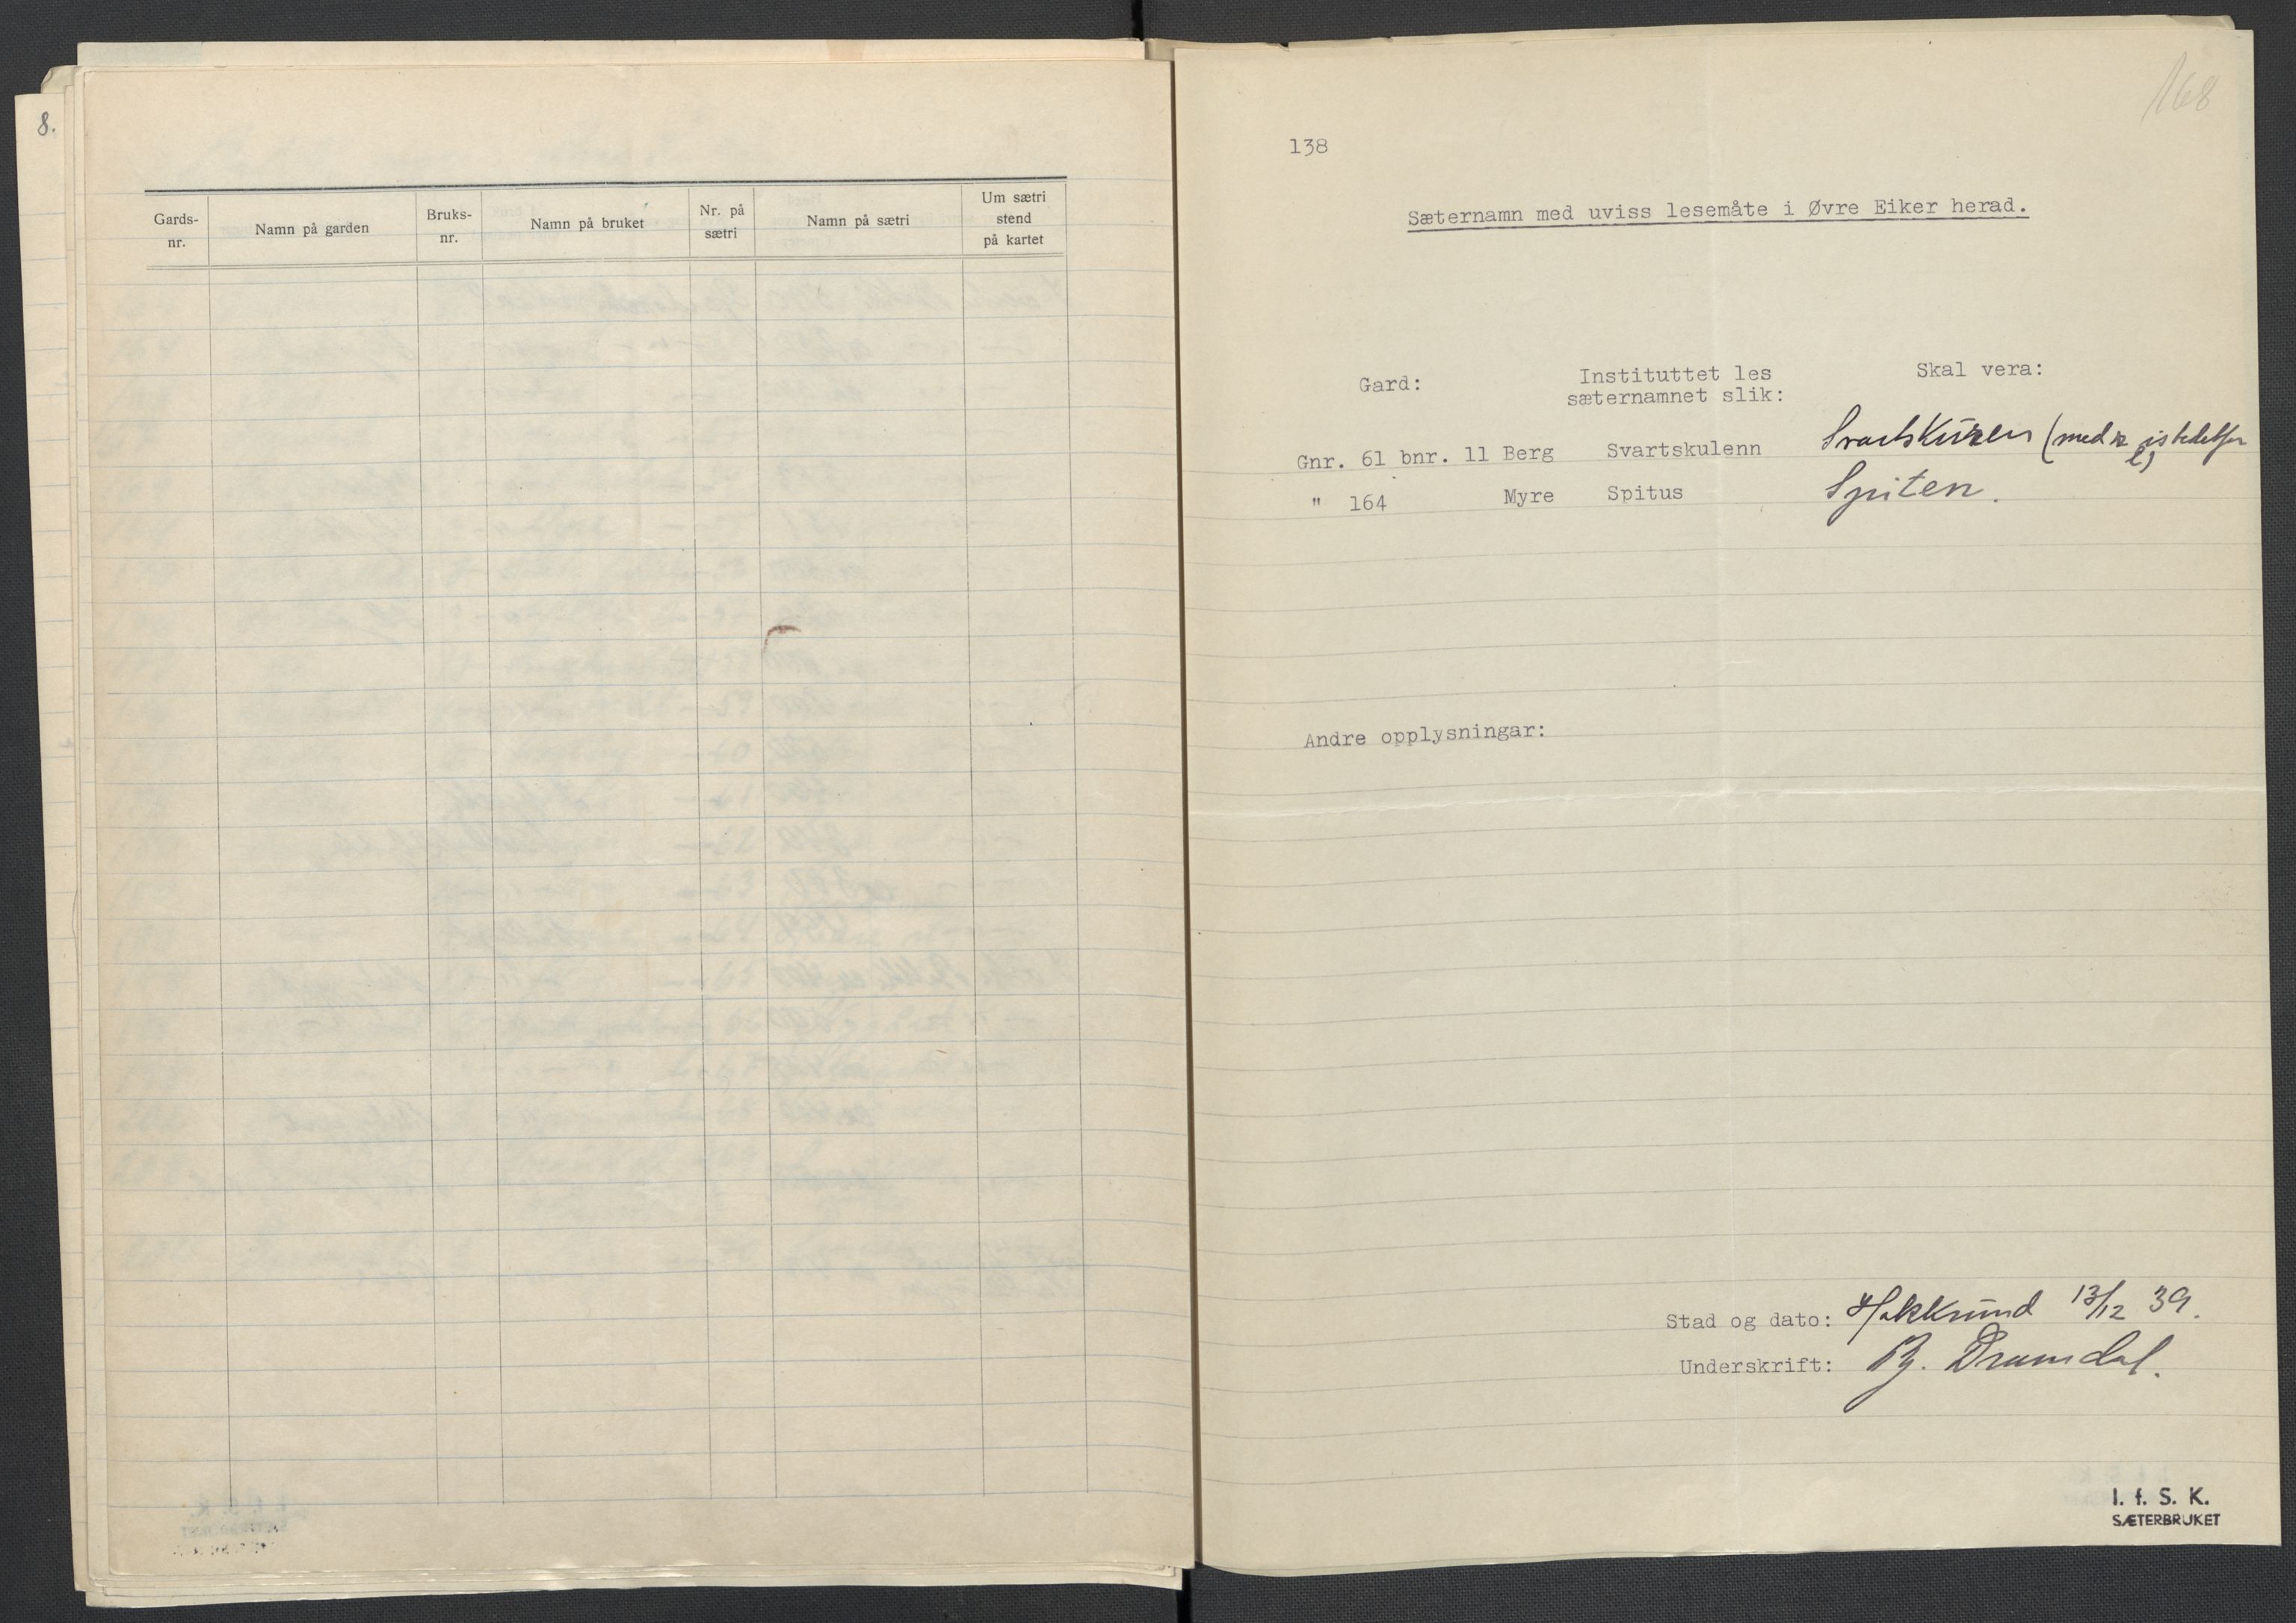 8.
Gards-
nr.
Namn på garden
Bruks-
nr.
Namn på bruket
Nr. på
sætri
Namn på sætri
Um sætri
stend
på kartet
168
138
Sæternamn med uviss lesemåte i Øvre Eiker herad.
Gard:
Instituttet les
sæternamnet slik:
Skal vera:
Gnr. 61 bnr. 11 Berg Svartskulenn Svartskuren (med r istedetfor
l)
" 164 Myre Spitus Spiten.
Andre opplysningar:
Stad og dato: Hokksund 13/12 39.
Underskrift: Dramdal.
I. f. S. K.
SÆTERBRUKET